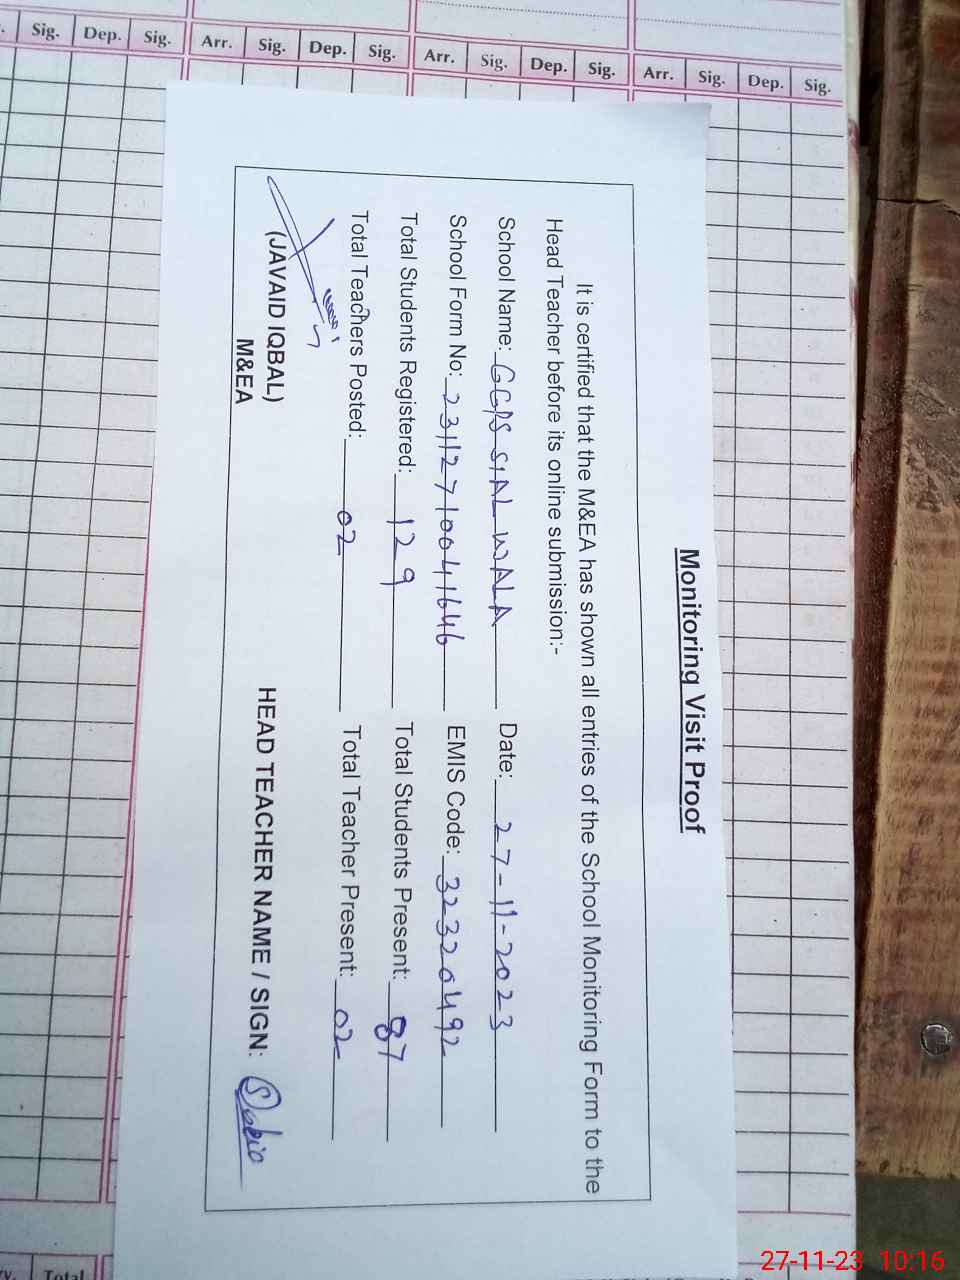 Sig. Dep. Sig. Arr. Sig. Dep. Sig. Arr. Sig. Dep. Sig. Arr. Sig. Dep. Sig.
Monitoring Visit Proof
It is certified that the M&EA has shown all entries of the School Monitoring Form to the
Head Teacher before its online submission:-
School Name: GGPS SIAL WALA Date: 27-11-2023
School Form No: 23112710041646 EMIS Code: 32320492
Total Students Registered: 129 Total Students Present: 87
Total Teachers Posted: 02 Total Teacher Present: 02
(JAVAID IQBAL)
M&EA
HEAD TEACHER NAME / SIGN:
Total
27-11-23 10:16